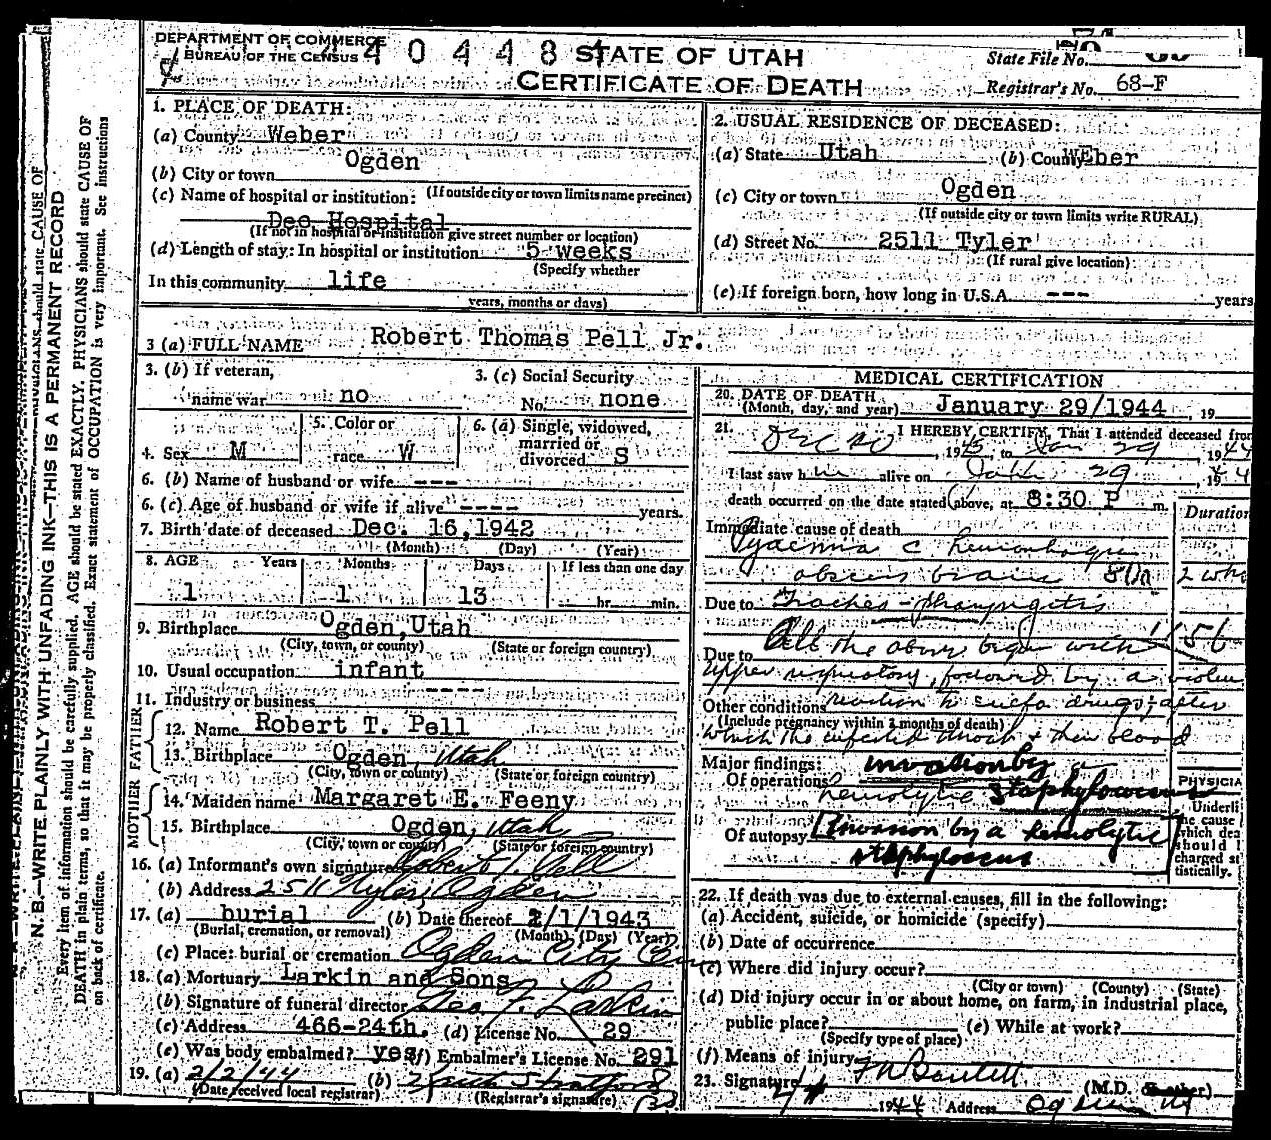 DEPARTMENT OF COMMERCE
BUREAU OF THE CENSUS
440448
STATE OF UTAH
CERTIFICATE OF DEATH
State File No.
Registrar's No. 68-F
1. PLACE OF DEATH:
(a) County Weber
(b) City or town Ogden
(If outside city or town limits name precinct)
(c) Name of hospital or institution:
Dee Hospital
(If not in hospital or institution give street number or location)
(d) Length of stay: In hospital or institution 5 weeks
(Specify whether
In this community life
years, months or days)
2. USUAL RESIDENCE OF DECEASED:
(a) State Utah (b) County WEber
(c) City or town Ogden
(If outside city or town limits write RURAL)
(d) Street No. 2511 Tyler
(If rural give location)
(e) If foreign born, how long in U.S.A. --- years
3 (a) FULL NAME Robert Thomas Pell Jr.
3. (b) If veteran,
name war no
3. (c) Social Security
No. none
4. Sex M
5. Color or
race W
6. (a) Single, widowed,
married or
divorced S
6. (b) Name of husband or wife ---
6. (c) Age of husband or wife if alive ---- years.
7. Birth date of deceased Dec. 16, 1942
(Month) (Day) (Year)
8. AGE Years Months Days If less than one day
1 1 13 hr. min.
9. Birthplace Ogden, Utah
(City, town, or county) (State or foreign country)
10. Usual occupation infant
11. Industry or business ----
FATHER
12. Name Robert T. Pell
13. Birthplace Ogden, Utah
(City, town or county) (State or foreign country)
MOTHER
14. Maiden name Margaret E. Feeny
15. Birthplace Ogden, Utah
(City, town or county) (State or foreign country)
16. (a) Informant's own signature Robert T. Pell
(b) Address 2511 Tyler, Ogden
17. (a) burial (b) Date thereof 2/1/1943
(Burial, cremation, or removal) (Month) (Day) (Year)
(c) Place: burial or cremation Ogden City Cem
18. (a) Mortuary Larkin and Sons
(b) Signature of funeral director Geo. F. Larkin
(c) Address 466-24th. (d) License No. 29
(e) Was body embalmed? yes (f) Embalmer's License No. 291
19. (a) 2/2/44 (b)
(Date received local registrar) (Registrar's signature)
MEDICAL CERTIFICATION
20. DATE OF DEATH
(Month, day, and year) January 29/1944, 19
21. I HEREBY CERTIFY, That I attended deceased from
, 1943, to Jan 29, 1944
I last saw him alive on Jan 29, 1944
death occurred on the date stated above, at 8:30 P m.
Duration
Immediate cause of death
Pyaemia c hemorrhagic
abscess brain
Due to Tracheo-pharyngitis
Due to All the above began with
upper respiratory, followed by a violent
Other conditions reaction to sulfa drugs after
(Include pregnancy within 3 months of death)
which the infected throat & then blood
Major findings: invasion by a
Of operations hemolytic staphylococcus
Of autopsy [Invasion by a hemolytic
staphyloccus
PHYSICIA
Underli
the cause
which dea
should
charged st
tistically.
22. If death was due to external causes, fill in the following:
(a) Accident, suicide, or homicide (specify)
(b) Date of occurrence
(c) Where did injury occur?
(City or town) (County) (State)
(d) Did injury occur in or about home, on farm, in industrial place,
public place? (e) While at work?
(Specify type of place)
(f) Means of injury
23. Signature F N Bartlett (M.D. or other)
1944 Address Ogden Ut
N.B.—WRITE PLAINLY WITH UNFADING INK—THIS IS A PERMANENT RECORD
Every item of information should be carefully supplied. AGE should be stated EXACTLY. PHYSICIANS should state CAUSE OF
DEATH in plain terms, so that it may be properly classified. Exact statement of OCCUPATION is very important. See instructions
on back of certificate.